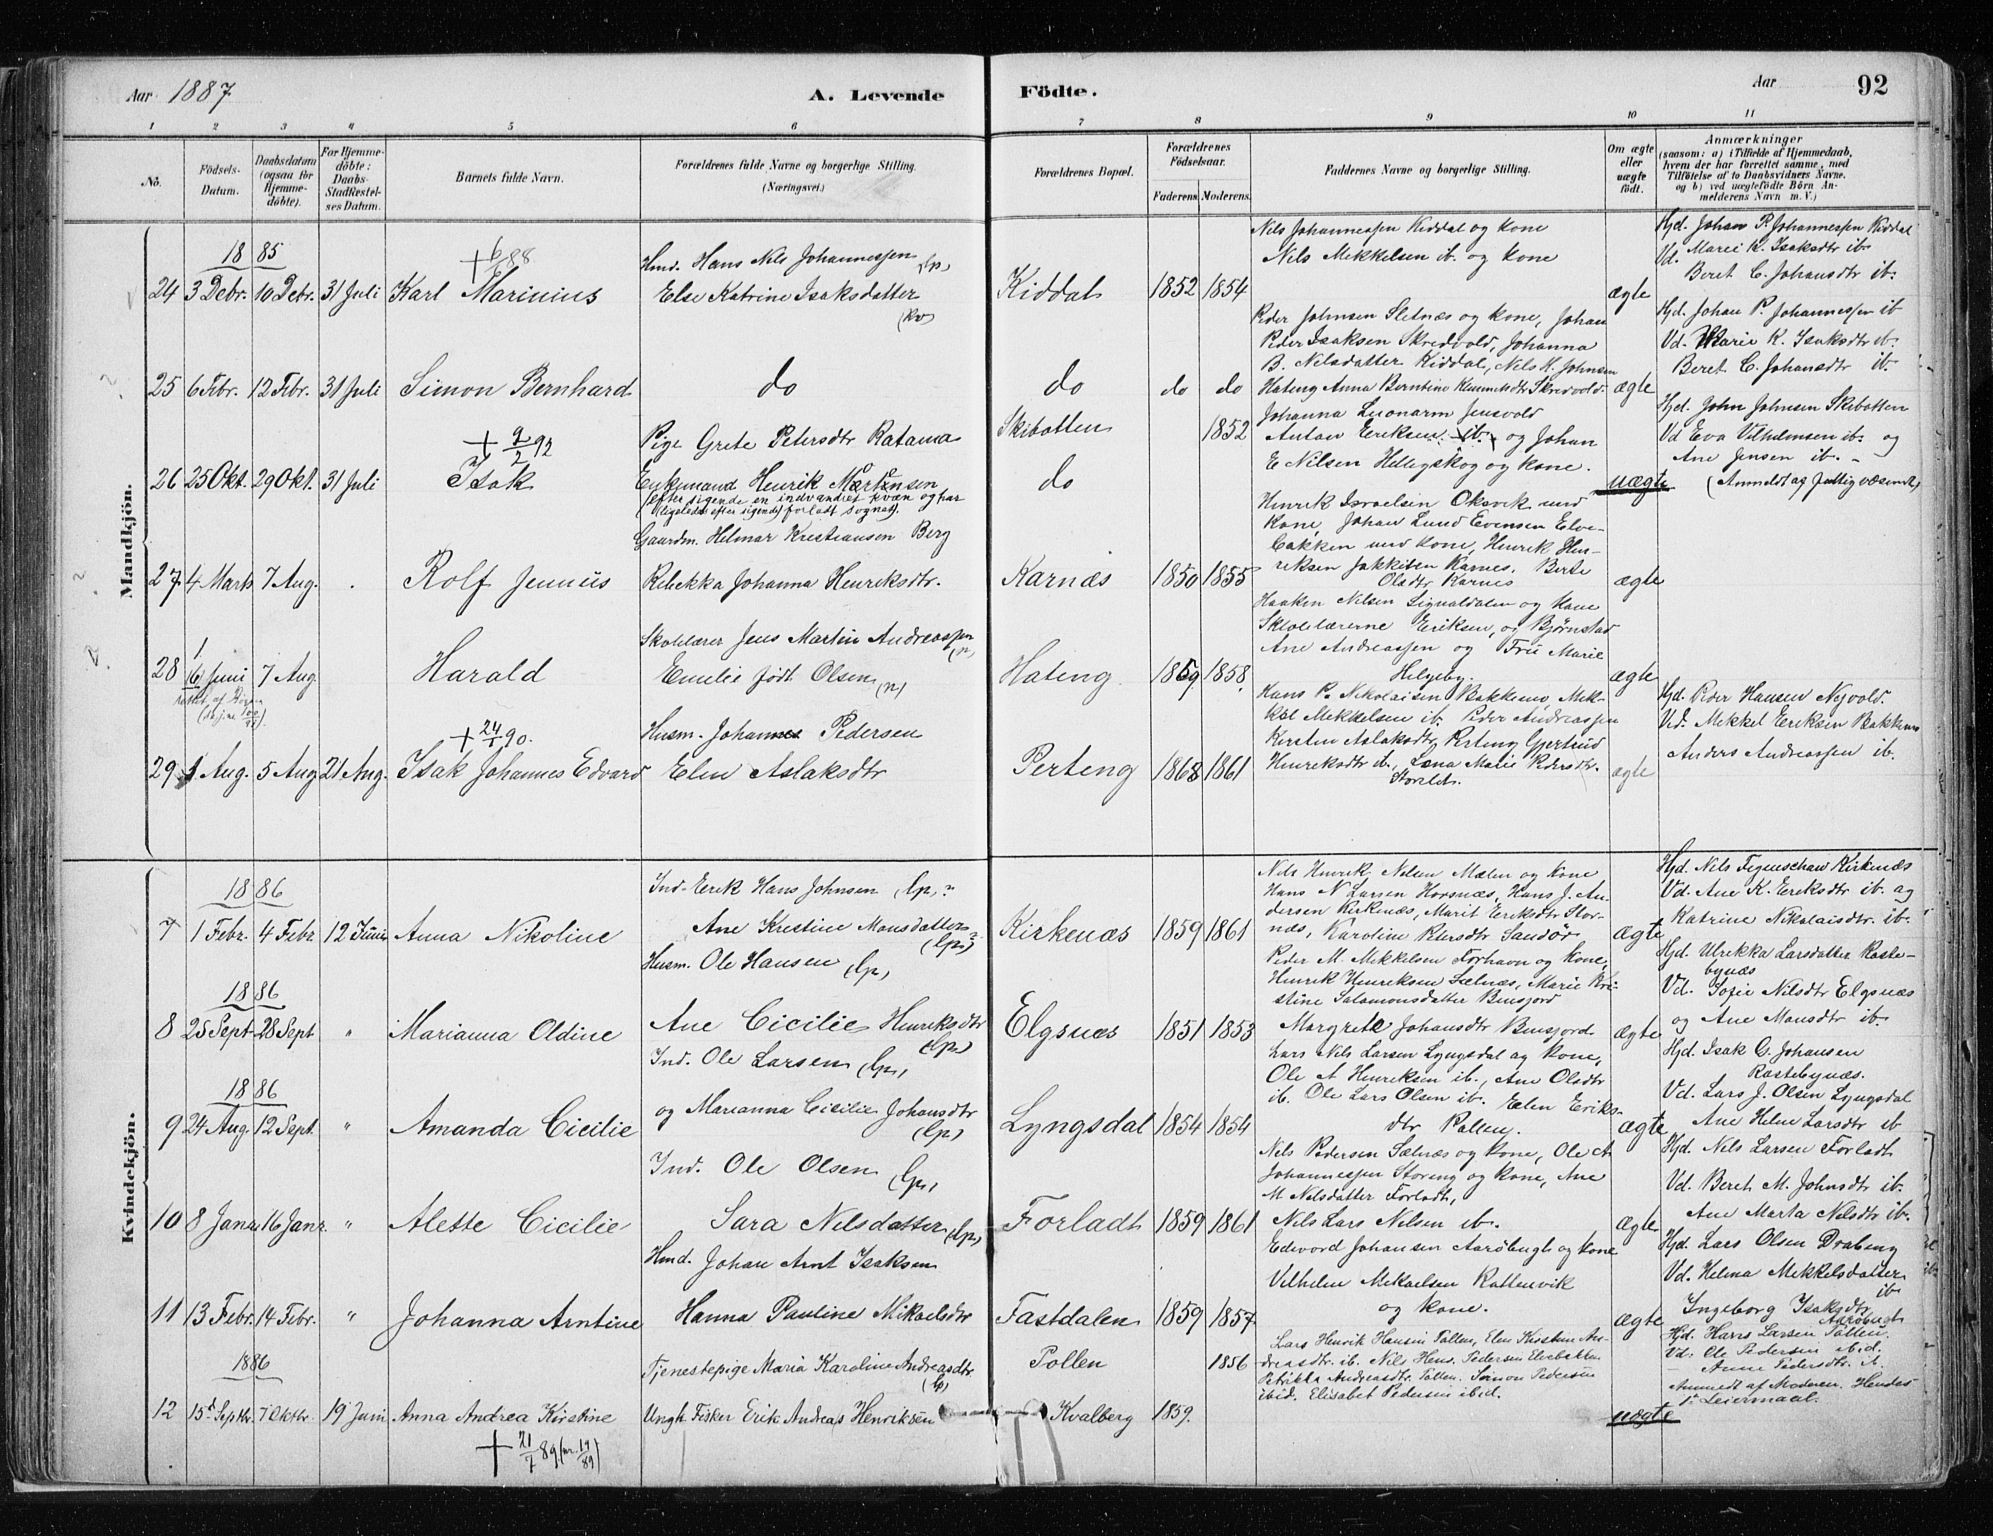 Aar 1887
A. Levende
Födte.
Aar
92
1 2 3 4 5 6 7 8 9 10 11
No.
Födsels-Datum.
Daabsdatum (ogsaa for Hjemme-döbte).
For Hjemme-döbte: Daabs-Stadfæstel-ses Datum.
Barnets fulde Navn.
Forældrenes fulde Navne og borgerlige Stilling.
(Næringsvei.)
Forældrenes Bopæl.
Forældrenes Födselsaar.
Faderens. Moderens.
Faddernes Navne og borgerlige Stilling.
Om ægte eller uægte födt.
Anmærkninger
(saasom: a) i Tilfælde af Hjemmedaab,
hvem der har forrettet samme, med
Tilföielse af to Daabsvidners Navne,
og b) ved uægtefödte Börn An-
melderens Navn m. V.)
Mandkjön.
1885
24 3 Debr. 10 Debr. 31 Juli Karl Marinius
Hmd. Hans Nils Johannessen (lp)
Else Katrine Isaksdatter (kv)
Kiddal 1852 1854
Nils Johannessen Kiddal og kone
Nils Mekkelsen ib. og kone
ægte
Hjd. Johan P. Johannessen Kiddal
Vd. Marei K. Isaksdtr ib.
Beret C. Johansdtr ib.
25 6 Febr. 12 Febr. 31 Juli Simon Bernhard
do
do do do
Peder Johnsen Sletnæs og kone, Johan
Peder Isaksen Skredvold, Johanna
B. Nilsdatter Kiddal, Nils K. Johnsen
Hateng Anna Berntine Klemmetsdtr Skredvold.
ægte
Hjd. Johan P. Johannessen ib
Vd. Marie K. Isaksdtr ib.
Beret C. Johansdtr ib.
+ 9/2 92
26 25 Okt. 29 Okt. 31 Juli Isak
Pige Grete Petersdtr Ratama
Enkemand Henrik Mortensen
(efter sigende en indvandret kvæn og har
(ligeledes efter sigende) forladt sognet).
Skibotten 1852
do
Johanna Luonarm Jensvold
Anton Eriksen ib. og Johan
E. Nilsen Hellegskog og kone.
uægte
Hjd. John Johnsen Skibotten
Vd Eva Vilhelmsen ib. og
Ane Jensen ib.
(Anmeldt af fattigvæsenet)
27 4 Marts 7 Aug. Rolf Jennius
Gaardm. Helmar Kristiansen Berg
Rebekka Johanna Henriksdtr.
Karnæs 1850 1855
Henrik Israelsen Oksvik med
kone, Johan Lund Evensen Elve-
bakken med kone, Henrik Hen-
riksen Jakkiten Karnes. Berte
Olsdtr Karnes
ægte
28 6 Juni 7 Aug Harald
Skolelærer Jens Martin Andreassen (n)
Emelie født Olsen (n)
Hateng 1859 1858
Haaken Nilsen Signaldalen og kone
Skolelærerne Eriksen, og Bjørnstad
Ane Andreassen og Frü Marie
Helgeby.
ægte
+ 24/1 90.
29 1 Aug. 5 Aug 21 Aug. Isak Johannes Edvard
Husm. Johannes Pedersen
Elen Aslaksdtr
Perteng 1868 1861
Hans P. Nikolaisen Bakkemo, Mek-
kel Mekkelsen ib. Peder Andreassen
Kirsten Aslaksdtr Perteng Gjertrud
Henriksdtr ib., Lena Marie Pedersdtr.
Storeldt.
ægte
Hjd. Peder Hansen Nyvold.
Vd. Mekkel Eriksen Bakkemo
Anders Andreassen ib.
Kvindekjön.
1886
7 1 Febr. 4 Febr 12 Juni Anna Nikoline
Ind. Eerik Hans Johnsen (lp)?
Ane Kristine Monsdatter (lp)?
Kirkenæs 1859 1861
Nils Henrik Nilsen Mælen og kone
Hans N Larsen Horsnæs, Hans J. An-
dersen Kirkenæs, Marit Eriksdtr Stor-
næs, Karoline Petersdtr Sandør
ægte
Hjd. Nils Figenschaw Kirkenæs
Vd. Ane K. Eriksdtr ib. og
Katrine Nikolaisdtr. ib.
1886
8 25 Sept. 28 Sept " Marianna Oldine
Husm. Ole Hansen (lp)
Ane Cicilie Henriksdtr (lp)
Elgsnæs 1851 1853
Peder M. Mekkelsen Forhavn og kone,
Henrik Henriksen Sælnæs, Marie Kri-
stine Salamonsdatter Bensjord
Margrete Johansdtr Bensjord
ægte
Hjd. Ulrekka Larsdatter Raste-
bynæs
Vd. Sofie Nilsdtr Elgsnæs
og Ane Monsdtr ib.
1886
9 24 Aug. 12 Sept. " Amanda Cicilie
Ind. Ole Larsen (lp)
og Marianna Cicilie Johansdtr (lp)
Lyngsdal 1854 1854
Lars Nils Larsen Lyngsdal og kone,
Ole A Henriksen ib., Ane Olsdtr
ib. Ole Lars Olsen ib. Elen Eriks-
dtr Pollen.
ægte
Hjd. Isak C. Johansen
Rastebynæs.
Vd. Lars J. Olsen Lyngsdal
Ane Helene Larsdtr ib
10 8 Janr 16 Janr. " Alette Cicilie
Ind. Ole Olsen (lp)
Sara Nilsdatter (lp)
Forladt 1859 1861
Nils Pedersen Sælnæs og kone, Ole A
Johannessen Storeng og kone, Ane
M Nilsdatter Forladt,
Nils Lars Nilsen ib.
ægte
Hjd. Nils Larsen Forladt
Vd. Beret M. Johnsdtr ib.
Ane Marta Nilsdtr ib.
11 13 Febr. 14 Febr. " Johanna Arntine
Hmd. Johan Arnt Isaksen
Hanna Pauline Mikaelsdtr
Fastdalen 1859 1857
Edvord Johansen Aarøbugt og kone
Vilhelm Mekaelsen Rottenvik
og kone.
ægte
Hjd. Lars Olsen Drabeng
Vd. Helma Mekkelsdatter ib
Ingeborg Isaksdtr
Aarøbugt
1886
12 15 Septbr. 7 Oktbr. 19 Juni Anna Andrea Kirstine
+ 21/7 89 (nr. 19/89)
Tjenestepige Maria Karoline Andreasdtr. (lp)
Ungk. Fisker Erik Andreas Henriksen
Pollen 1856
Kvalberg 1859.
Lars Henrik Hansen Pollen, Elen Kirstine An-
dreasdtr. ib. Nils Hens. Pedersen Elvebakken
Petrikka Andreasdtr. Pollen. Simon Pedersen
ibid. Elisabet Pedersen ibid.
uægte
Hjd. Hans Larsen Pollen.
Vd. Ole Pedersen ibid.
— Anne Pedersdtr. ib.
Anmeldt af Moderen. Hendes
1ste Leiermaal.